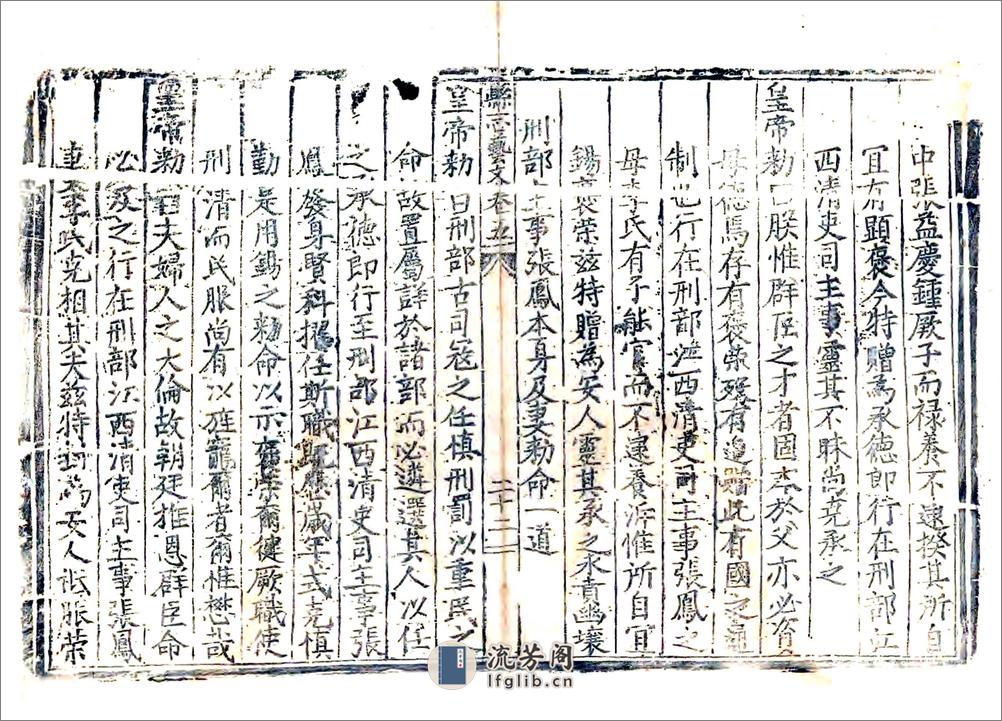 中張益慶鍾厥子而禄養不逮揆其所自
宜有顯褒今特贈為承德郎行在刑部江
西清吏司主事靈其不昧尚克承之
皇帝勅曰朕惟群臣之才者固本於父亦必資
母德焉存有褒榮殁有追贈此有國之通
制也行在刑部江西清吏司主事張鳳之
母李氏有子能官而不逮養泝惟所自宜
錫褒榮兹特贈為安人靈其承之永賁幽壤
刑部主事張鳳本身及妻勅命一道
縣志藝文卷五 二十二
皇帝勅曰刑部古司寇之任慎刑罰以重民之
命故置屬詳於諸部而必遴選其人以任
之承德郎行在刑部江西清吏司主事張
鳳發身賢科擢任斯職既歷歲年式克慎
勤是用錫之勅命以示褒榮爾其健厥職使
刑清而民服尚有以旌寵爾者爾惟懋哉
皇帝勅曰夫婦人之大倫故朝廷推恩群臣命
必及之行在刑部江西清吏司主事張鳳
妻李氏克相其夫兹特封為安人祗服榮
流芳阁
lfglib.cn